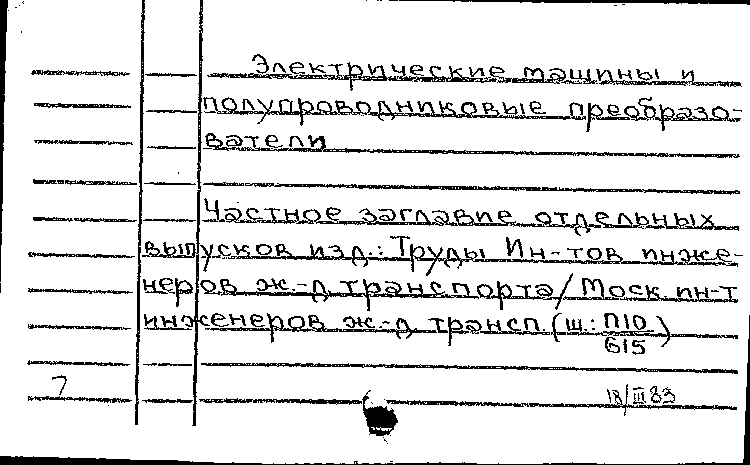 Электрические машины и
полупроводниковые преобразо-
ватели
Частное заглавие отдельных
выпусков изд.: Труды Ин-тов инже-
неров ж.-д. транспорта/Моск. ин-т
инженеров ж.-д. трансп. (ш.: П10
615)
7
18/III 83